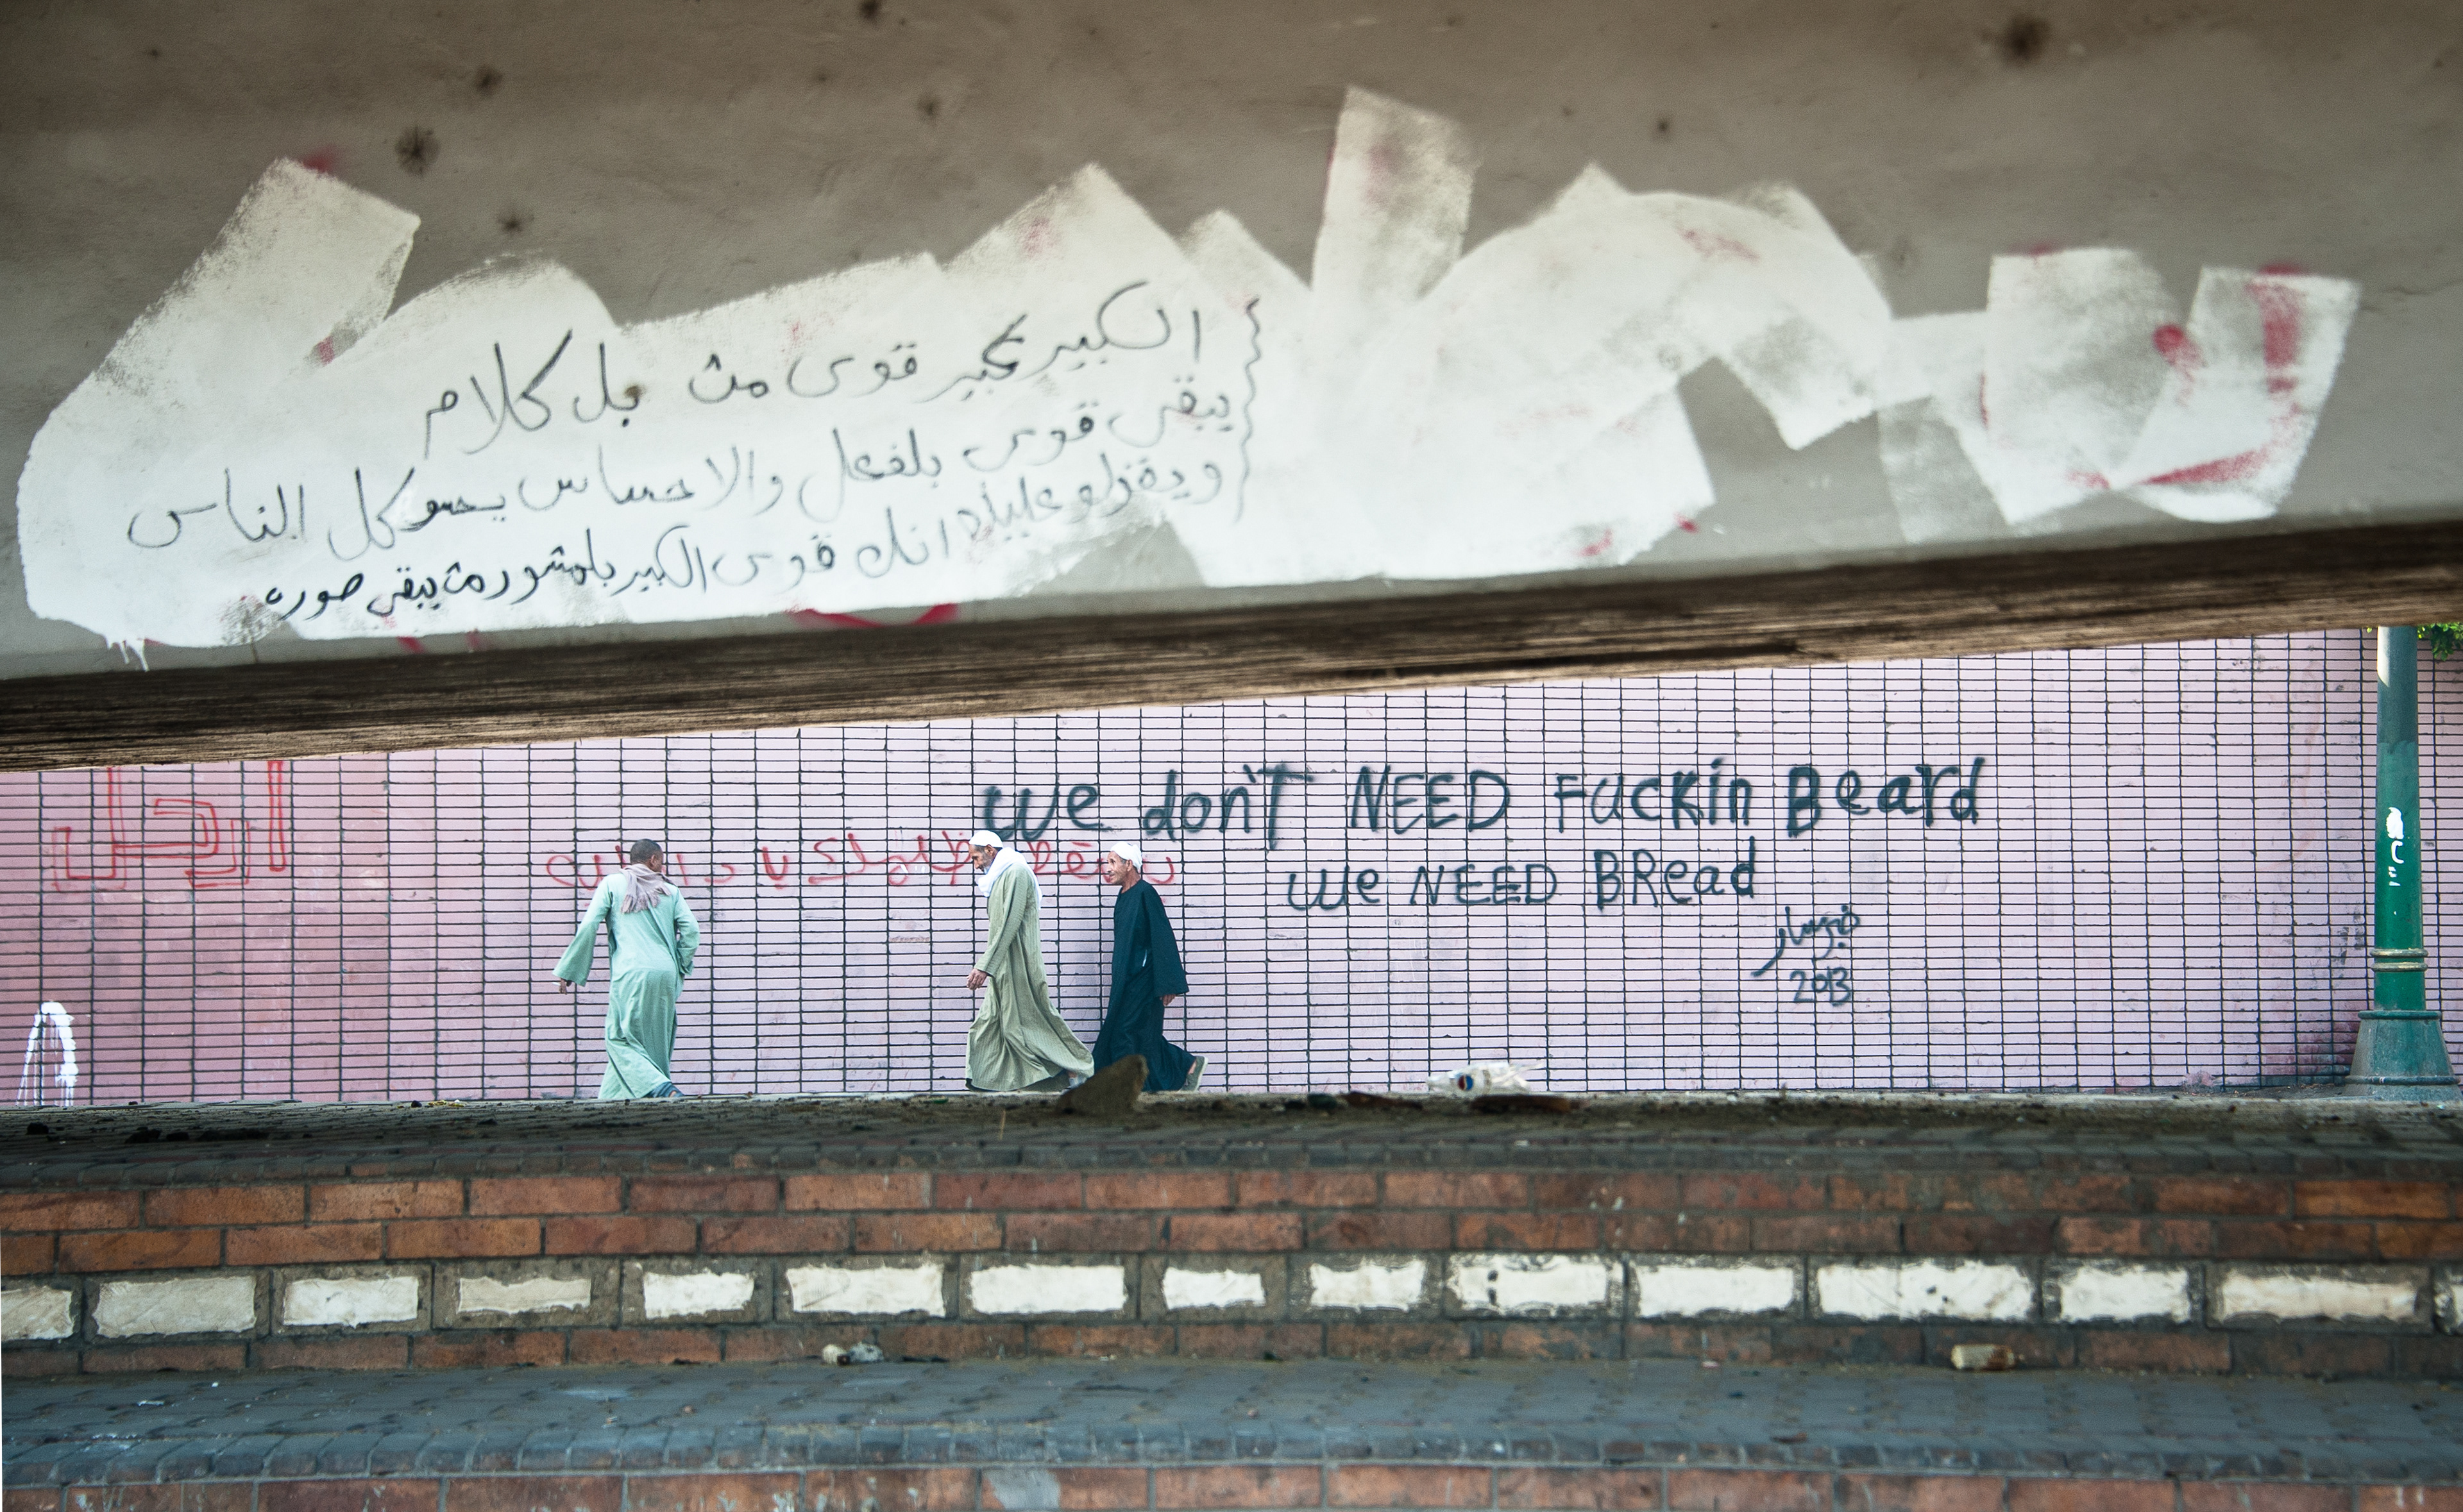 الكبير كبير قوى مش بل كلام
يبقى قوى بلفعل والاحساس يحسو كل الناس
ويقولو عليك انك قوى الكبير بلمشور مش يبقى صوره
we don't NEED FuckiN Beard
we NEED BRead
2013
ارحل
يسقط